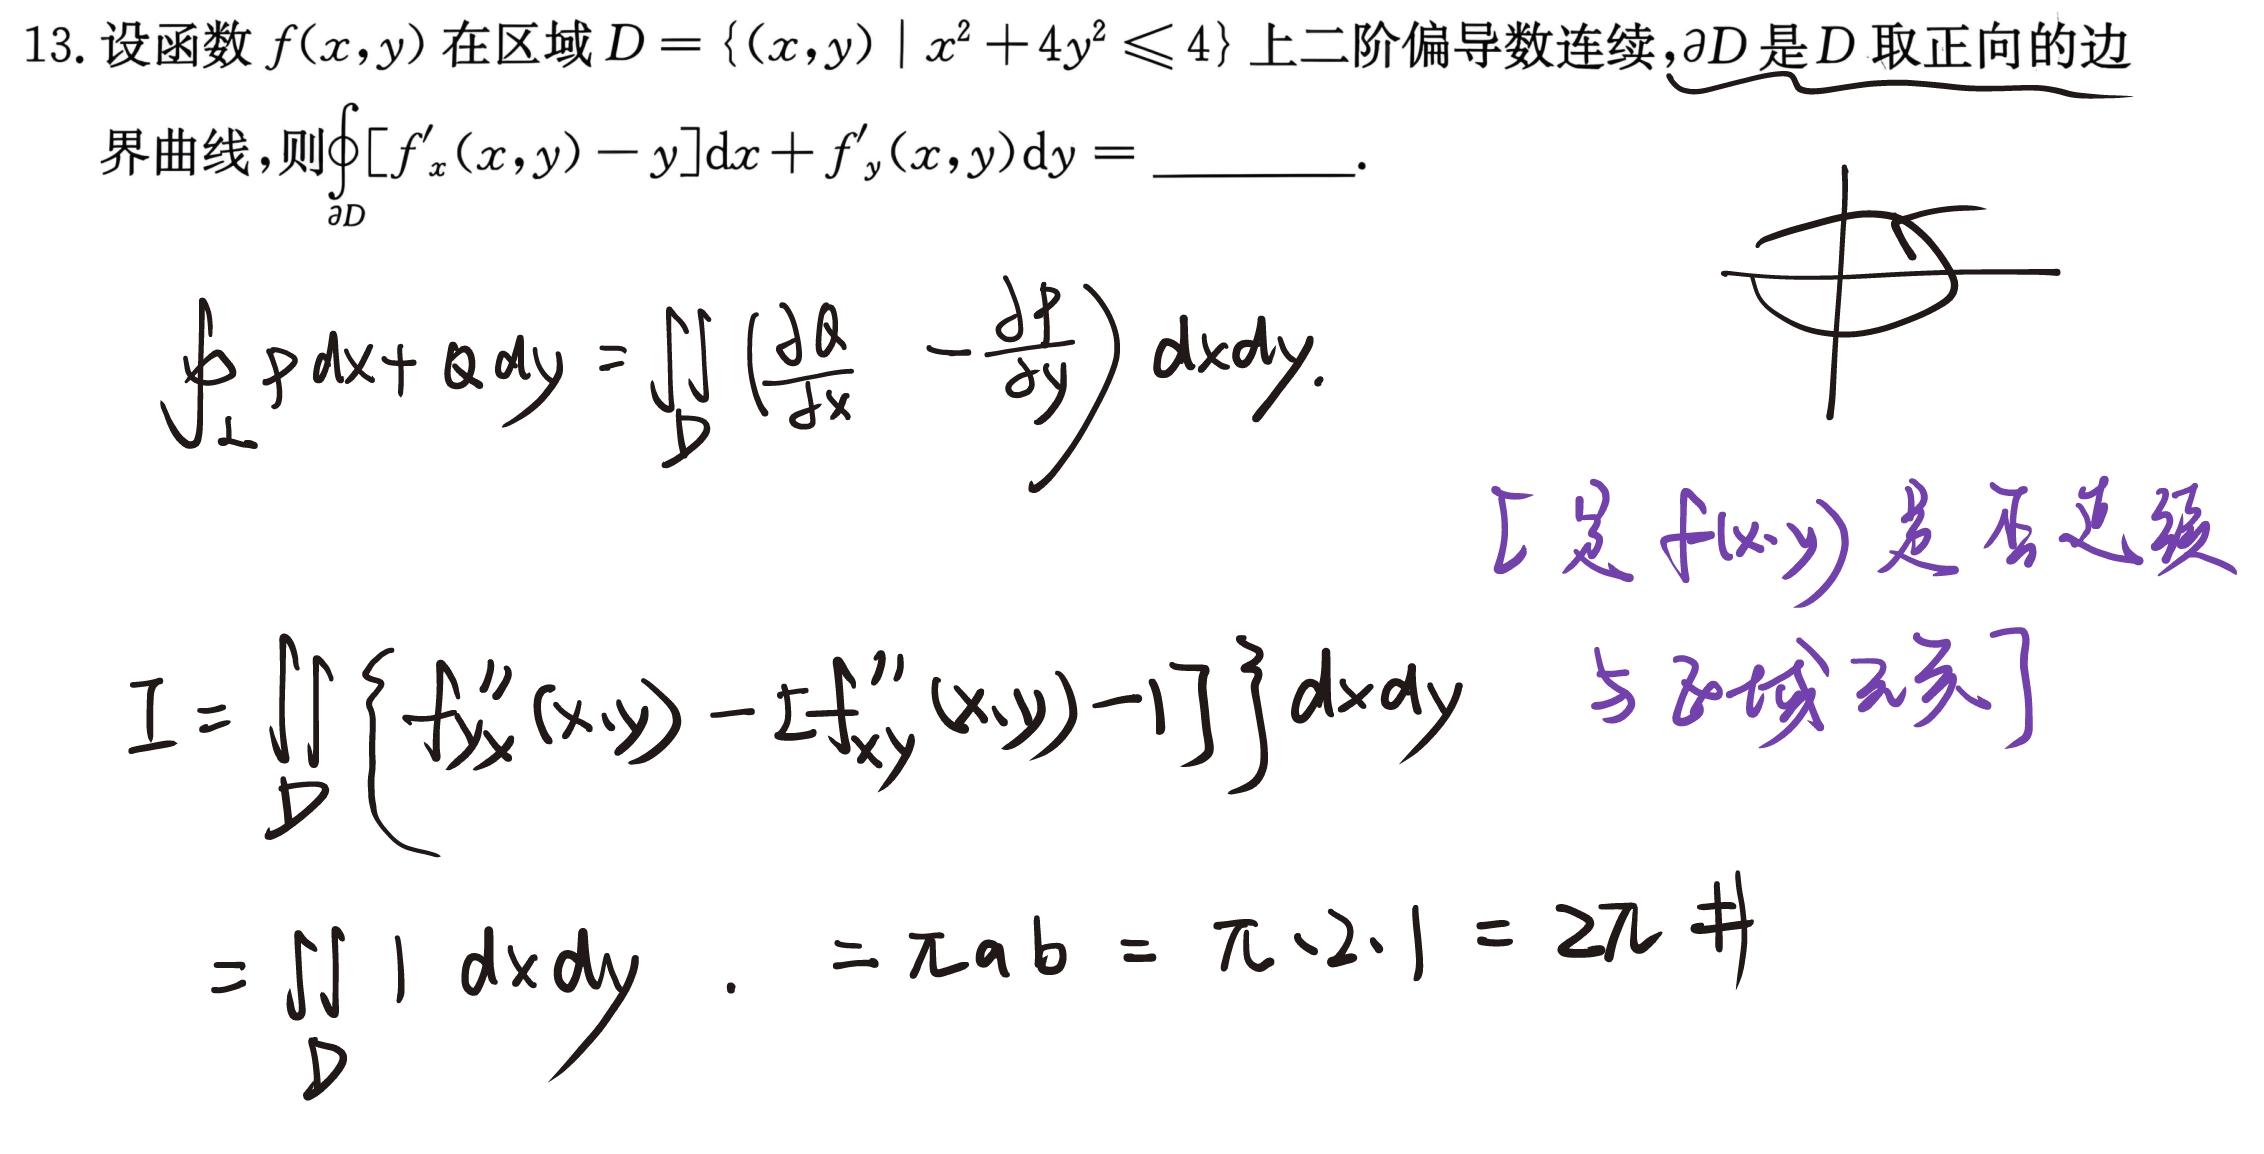 13. 设函数 f(x,y) 在区域 D = {(x,y) | x² + 4y² ⩽ 4} 上二阶偏导数连续,∂D 是 D 取正向的边
界曲线,则∮_{∂D}[f′ₓ(x,y) − y]dx + f′_y(x,y)dy = ________.
∮_L Pdx + Qdy = ∬_D (∂Q/∂x − ∂P/∂y) dxdy.
f(x,y) 是否连续
I = ∬_D {f″_{yx}(x,y) − [f″_{xy}(x,y) − 1]} dxdy
与区域无关]
= ∬_D 1 dxdy . = πab = π·2·1 = 2π #